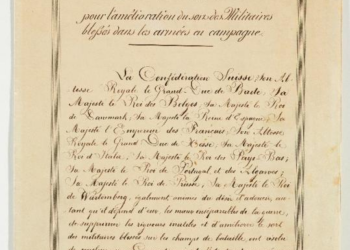 pour l'amélioration du sort des Militaires
blessés dans les armées en campagne
La Confédération Suisse; Son Al-
tesse Royale le Grand-Duc de Bade; Sa
Majesté le Roi des Belges; Sa Majesté le Roi
de Danemark; Sa Majesté la Reine d'Espagne; Sa
Majesté l'Empereur des Français; Son Altesse
Royale le Grand-Duc de Hesse; Sa Majesté le
Roi d'Italie; Sa Majesté le Roi des Pays-Bas;
Sa Majesté le Roi de Portugal et des Algarves;
Sa Majesté le Roi de Prusse; Sa Majesté le Roi
de Würtemberg, également animés du désir d'adoucir, au-
tant qu'il dépend d'eux, les maux inséparables de la guerre,
de supprimer les rigueurs inutiles et d'améliorer le sort
des militaires blessés sur les champs de bataille, ont résolu